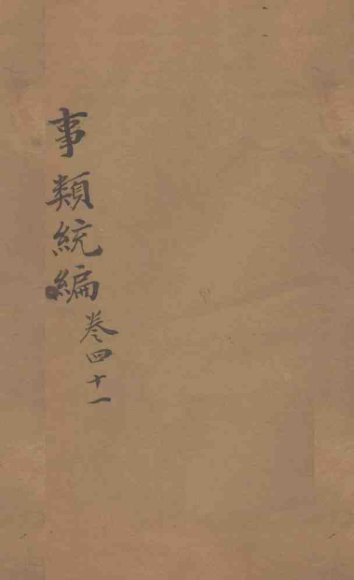 事類統編卷四十一